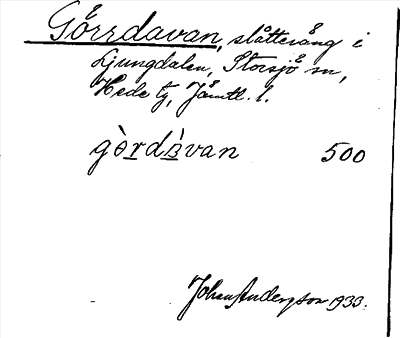 Görrdavan, slåtteräng i
Ljungdalen, Storsjö sn,
Hede tg, Jämtl. l.
gὸrdàvan 500
Johan Anderson 1933.